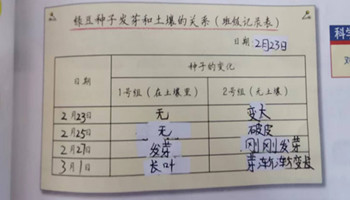 绿豆种子发芽和土壤的关系（班级记录表）
日期 2月23日
日期 种子的变化
1号组（在土壤里） 2号组（无土壤）
2月23日 无 变大
2月25日 无 破皮
2月27日 发芽 刚刚发芽
3月1日 长叶 芽渐渐变长
科学